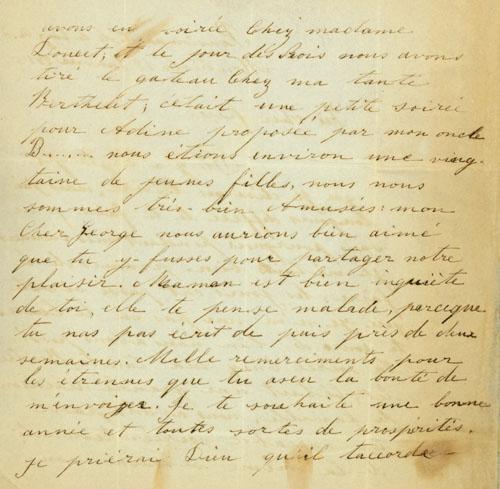 avons eu soirée Chez madame
Doucet, et le jour des Rois nous avons
tiré le gateau Chez ma tante
Berthelet; cétait une petite soirée
pour Adine proposée par mon oncle
D....... nous étions environ une ving-
taine de jeunes filles, nous nous
sommes très-bien Amusées: mon
Cher George nous aurions bien aimé
que tu y-fusses pour partager notre
plaisir. Maman est bien inquiète
de toi, elle te pense malade, parceque
tu nas pas écrit de puis près de deux
semaines. Mille remerciments pour
les étrennes que tu aseu la bonté de
m'envoyer. Je te souhaite une bonne
année et toutes sortes de prosperités.
je prierai Dieu qu'il taccorde